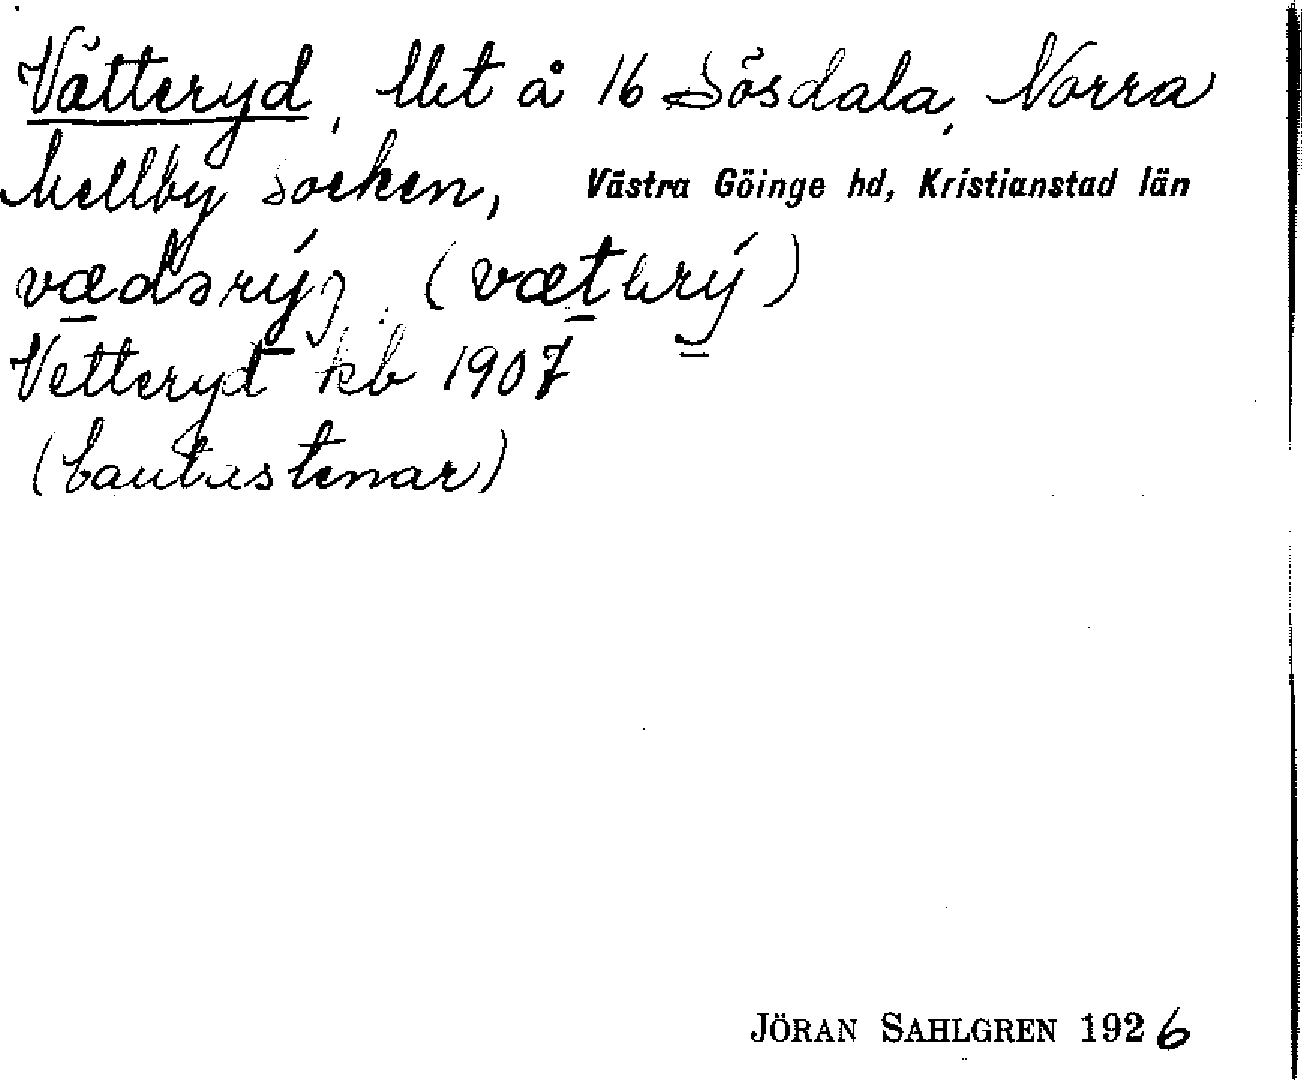 Vätteryd, Ubt å 16 Sösdala, Norra
Mellby socken, Västra Göinge hd, Kristianstad län
vædərýj. (
Vetteryd kb 1907
(bautastenar)
JÖRAN SAHLGREN 1926